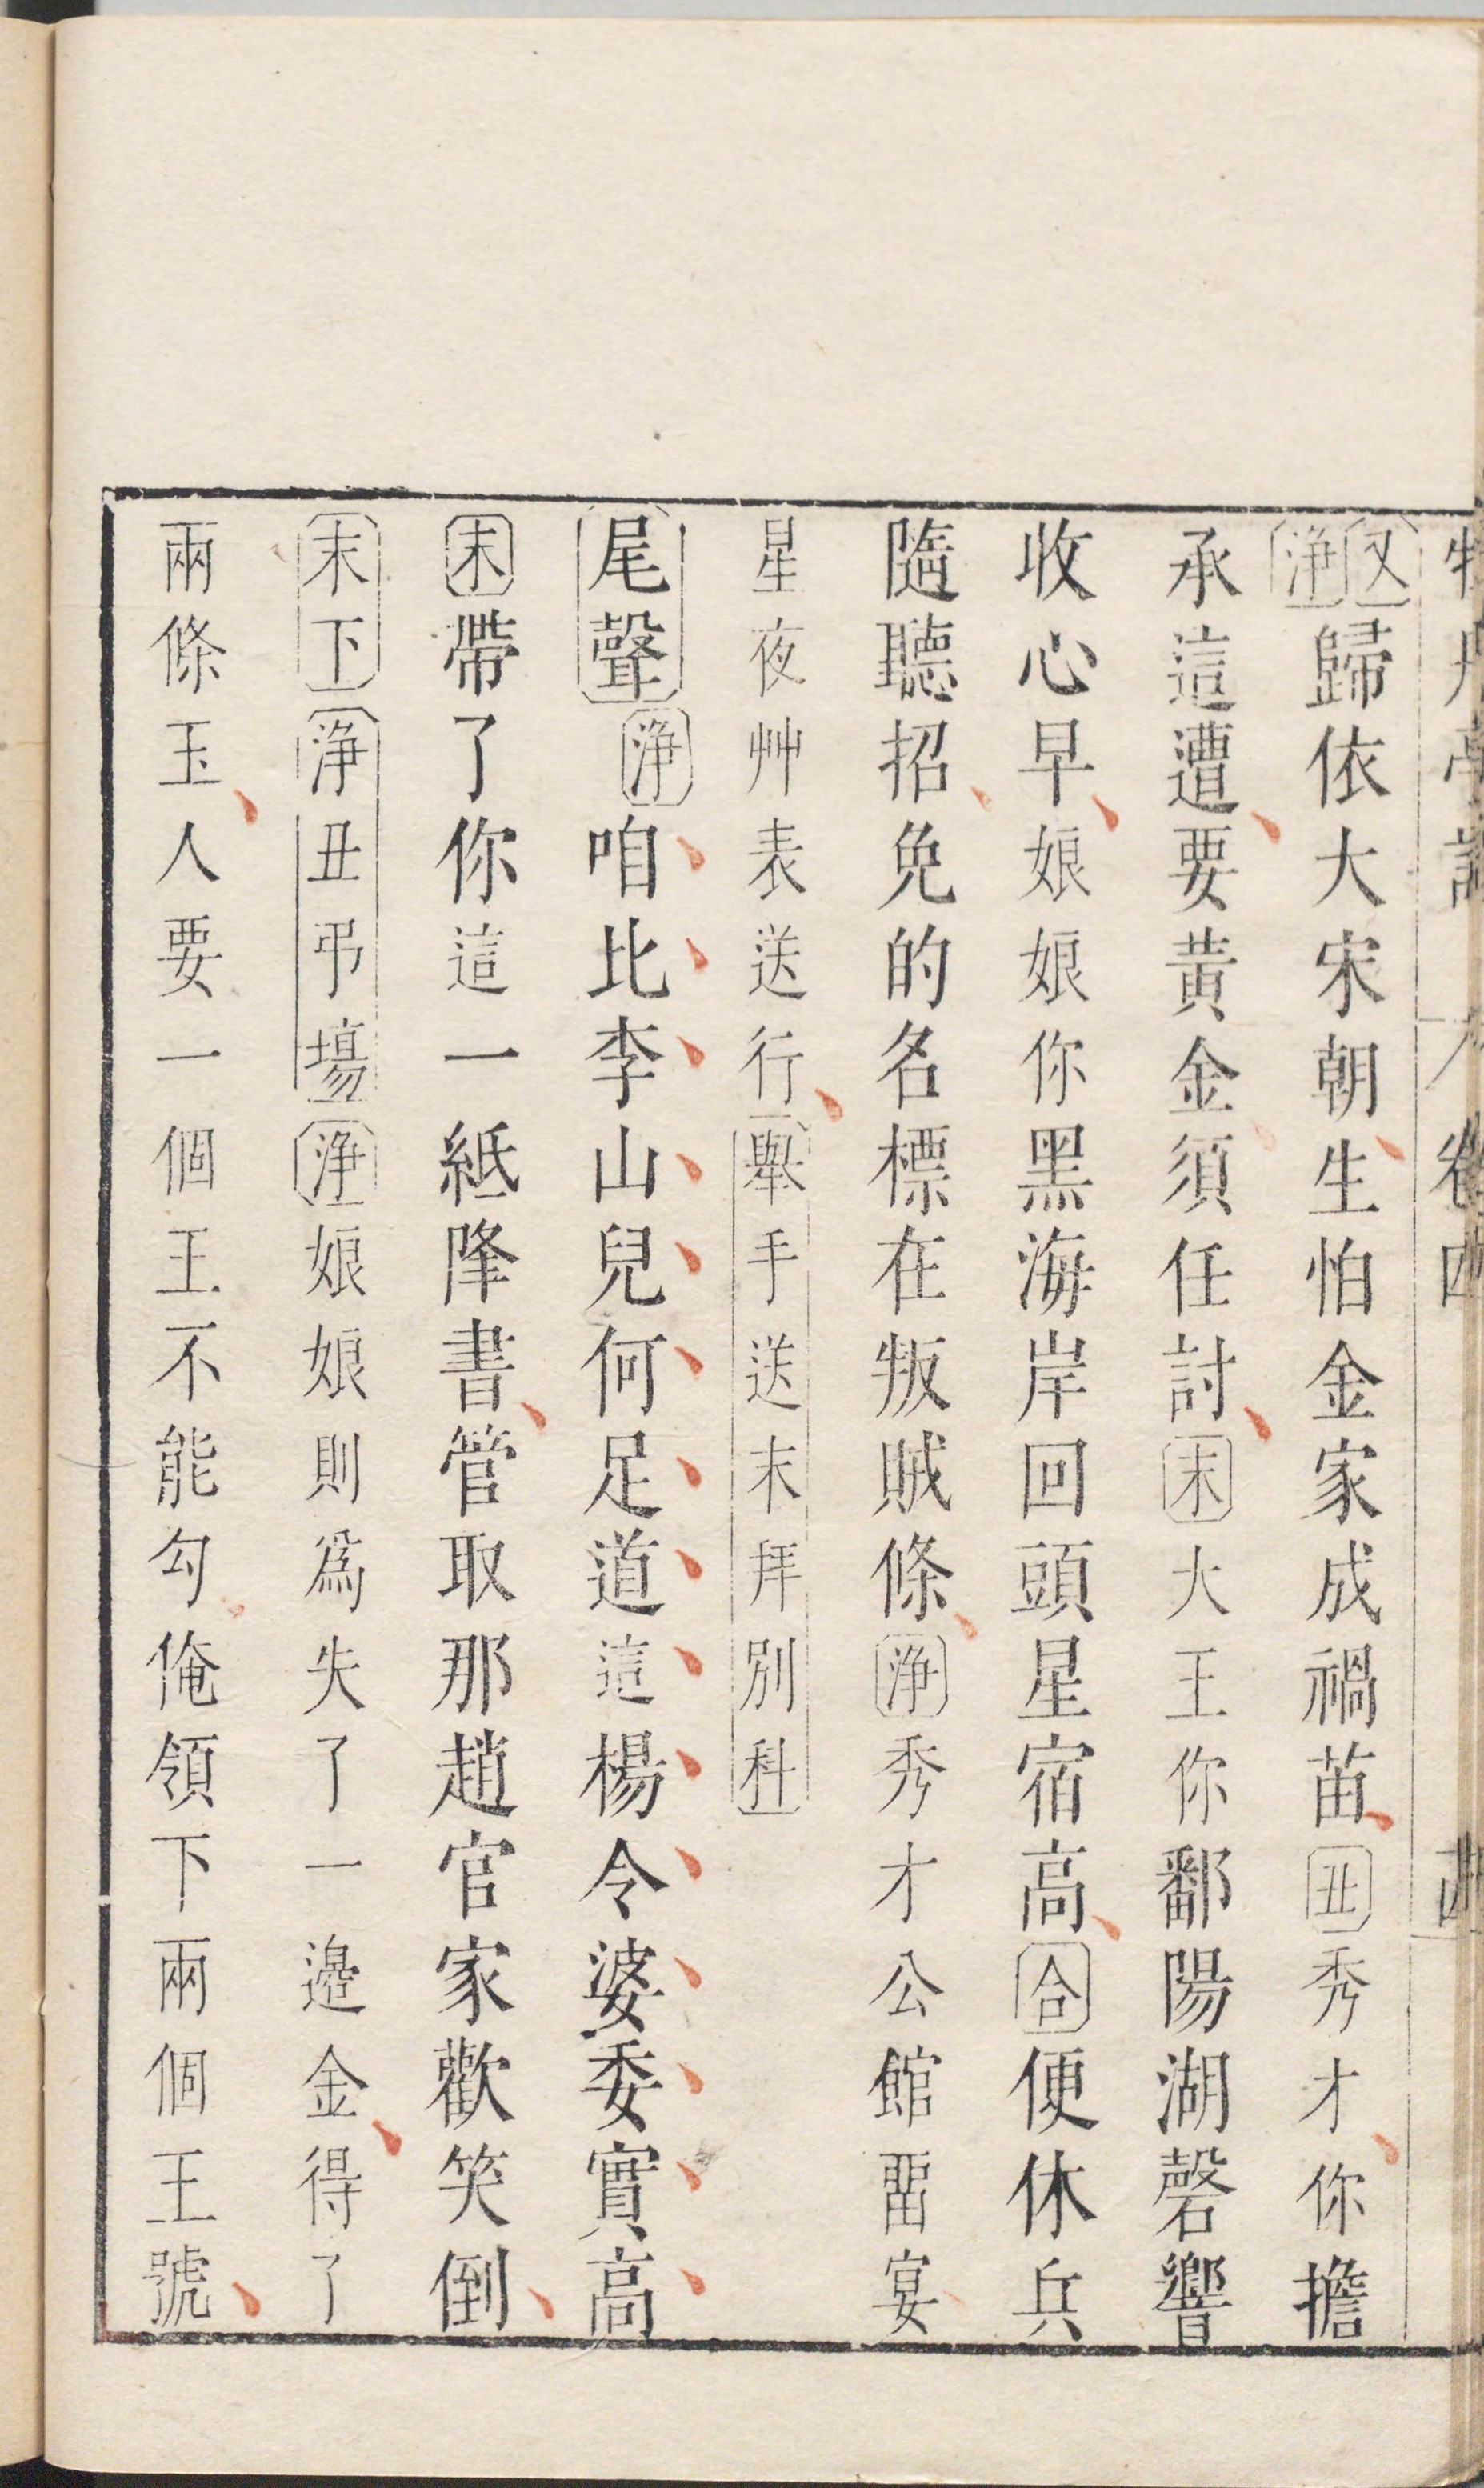 牡丹亭記 卷四
又淨歸依大宋朝生怕金家成禍苗丑秀才你擔
承這遭要黃金須任討末大王你鄱陽湖磬響
收心早娘娘你黑海岸回頭星宿高合便休兵
隨聽招免的名標在叛賊條淨秀才公館畱宴
星夜艸表送行舉手送末拜別科
尾聲淨咱比李山兒何足道這楊令婆委實高
末帶了你這一紙降書管取那趙官家歡笑倒
末下淨丑弔場淨娘娘則爲失了一邉金得了
兩條玉人要一個王不能勾俺領下兩個王號